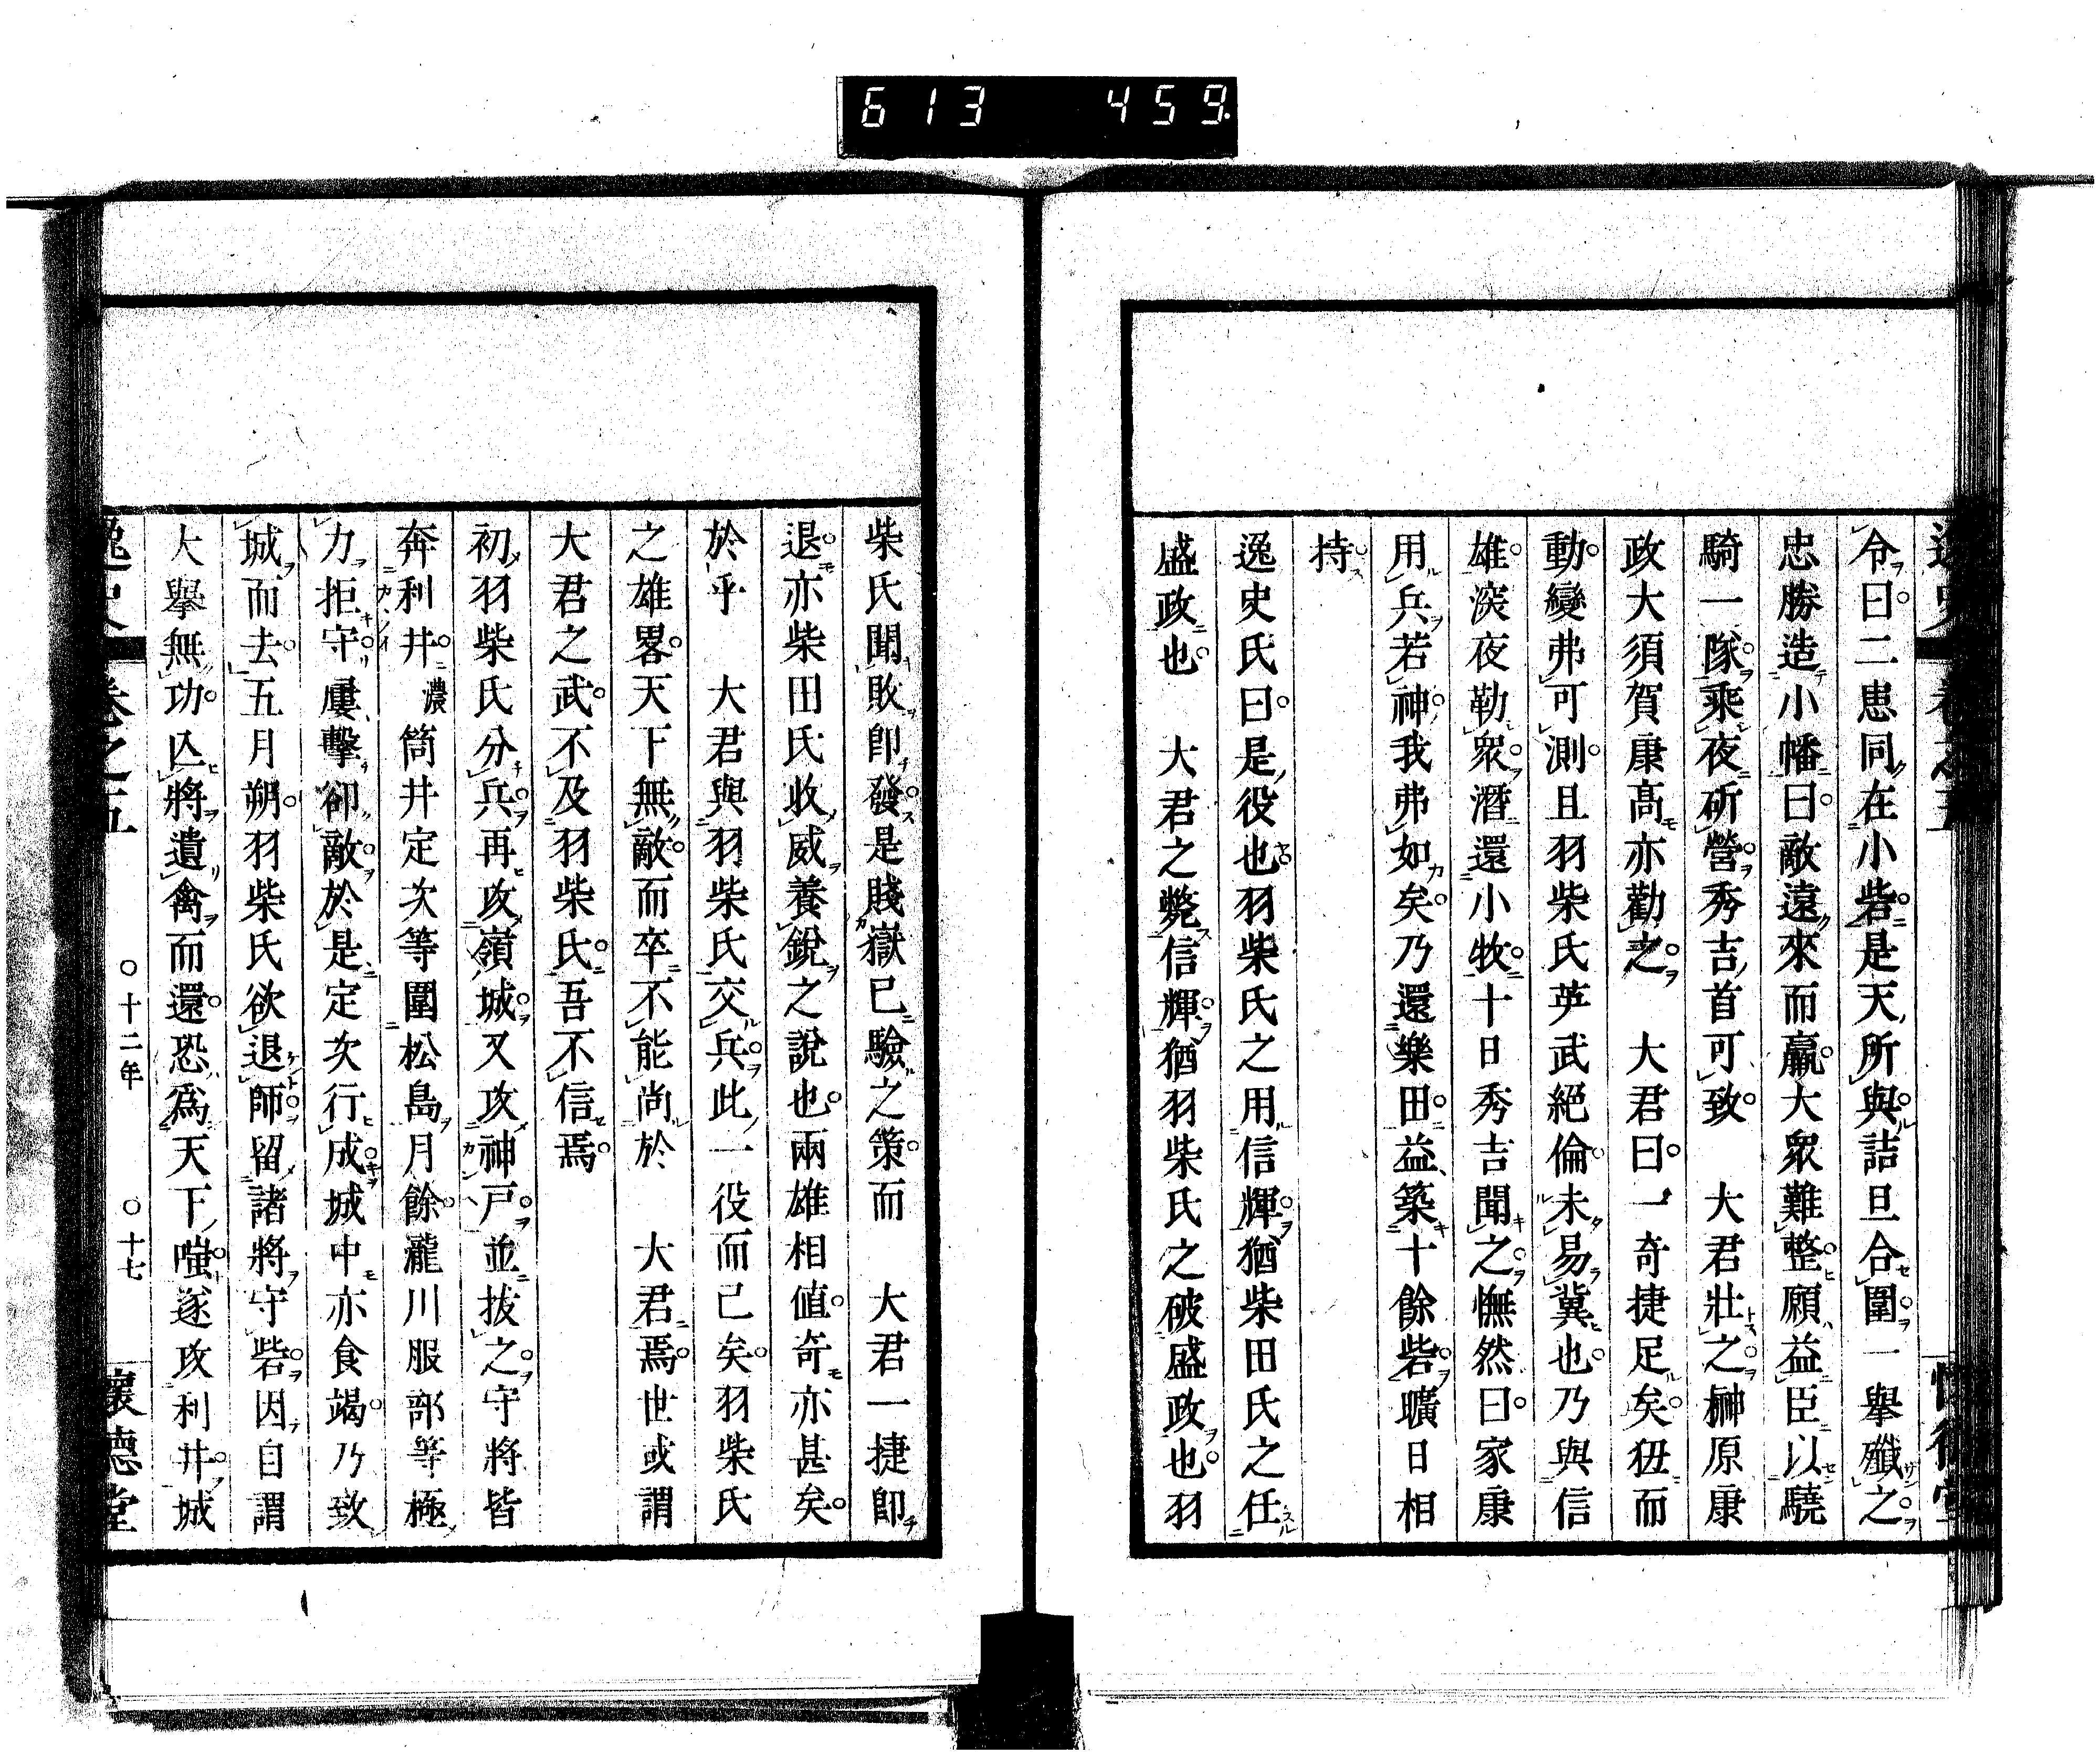 613 459
逸史 卷之五 懷德堂
令曰二患同在小砦是天所與詰旦合圍一擧殲之
忠勝造小幡曰敵遠來而羸大衆難整願益臣以驍
騎一隊乘夜斫營秀吉首可致 大君壯之榊原康
政大須賀康髙亦勸之 大君曰一奇捷足矣狃而
動變弗可測且羽柴氏英武絕倫未易冀也乃與信
雄深夜勒衆潛還小牧十日秀吉聞之憮然曰家康
用兵若神我弗如矣乃還樂田益築十餘砦曠日相
持
逸史氏曰是役也羽柴氏之用信輝猶柴田氏之任
盛政也 大君之斃信輝猶羽柴氏之破盛政也羽
柴氏聞敗卽發是賤嶽已驗之策而 大君一捷卽
退亦柴田氏收威養銳之說也兩雄相値奇亦甚矣
於乎 大君與羽柴氏交兵此一役而已矣羽柴氏
之雄畧天下無敵而卒不能尚於 大君焉世或謂
大君之武不及羽柴氏吾不信焉
初羽柴氏分兵再攻嶺城又攻神戸並拔之守將皆
奔利井濃筒井定次等圍松島月餘瀧川服部等極
力拒守屢擊卻敵於是定次行成城中亦食竭乃致
城而去五月朔羽柴氏欲退師留諸將守砦因自謂
大擧無功亾將遺禽而還恐爲天下嗤遂攻利井城
逸史 卷之五 〇十二年 〇十七 懷德堂